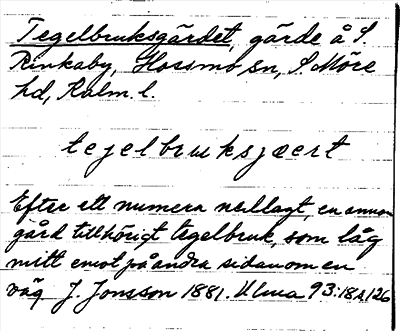 Tegelbruksgärdet, gärde å S.
Rinkaby, Hossmo sn, S. Möre
hd, Kalm. l.
tejelbruksjært
Efter ett numera nedlagt, en annan
gård tillhörigt tegelbruk, som låg
mitt emot på andra sidan om en
väg J. Jonsson 1881. Ulma 93:18 s. 126